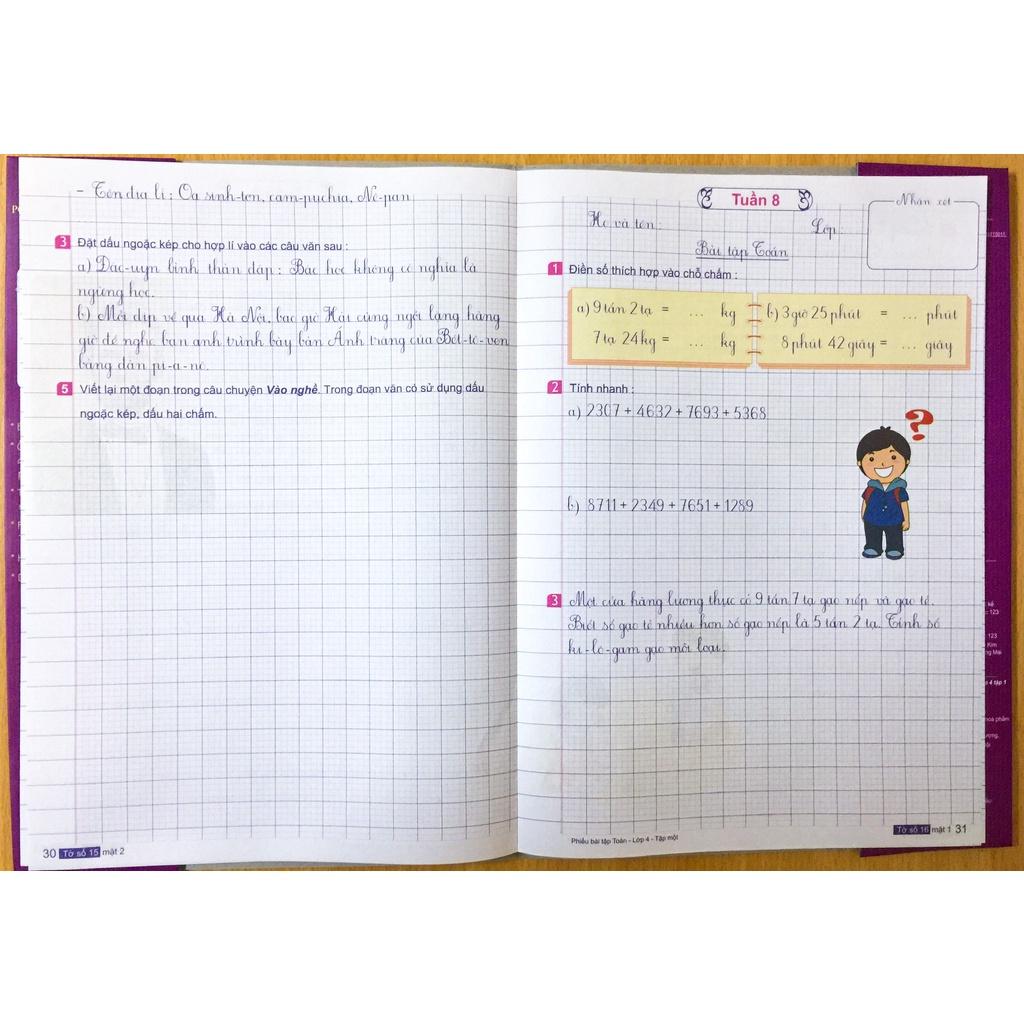 - Tên địa lí: Oa sinh-tơn, cam-puchia, Nê-pan
3 Đặt dấu ngoặc kép cho hợp lí vào các câu văn sau :
a) Đác-uyn bình thản đáp: Bác học không có nghĩa là
ngừng học.
b) Mỗi dịp về qua Hà Nội, bác giờ Hải cũng ngồi lặng hàng
giờ để nghe bạn anh trình bày bản Ánh trăng của Bét-tô-ven
bằng đàn pi-a-nô.
5 Viết lại một đoạn trong câu chuyện Vào nghề. Trong đoạn văn có sử dụng dấu
ngoặc kép, dấu hai chấm.
30 Tờ số 15 mặt 2
Tuần 8
Nhận xét
Họ và tên: Lớp:
Bài tập Toán
1 Điền số thích hợp vào chỗ chấm :
a) 9 tấn 2 tạ = ... kg
7 tạ 24 kg = ... kg
b) 3 giờ 25 phút = ... phút
8 phút 42 giây = ... giây
2 Tính nhanh :
a) 2307 + 4632 + 7693 + 5368
b) 8711 + 2349 + 7651 + 1289
3 Một cửa hàng lương thực có 9 tấn 7 tạ gạo nếp và gạo tẻ.
Biết số gạo tẻ nhiều hơn số gạo nếp là 5 tấn 2 tạ. Tính số
ki-lô-gam gạo mỗi loại.
Phiếu bài tập Toán - Lớp 4 - Tập một
Tờ số 16 mặt 1 31